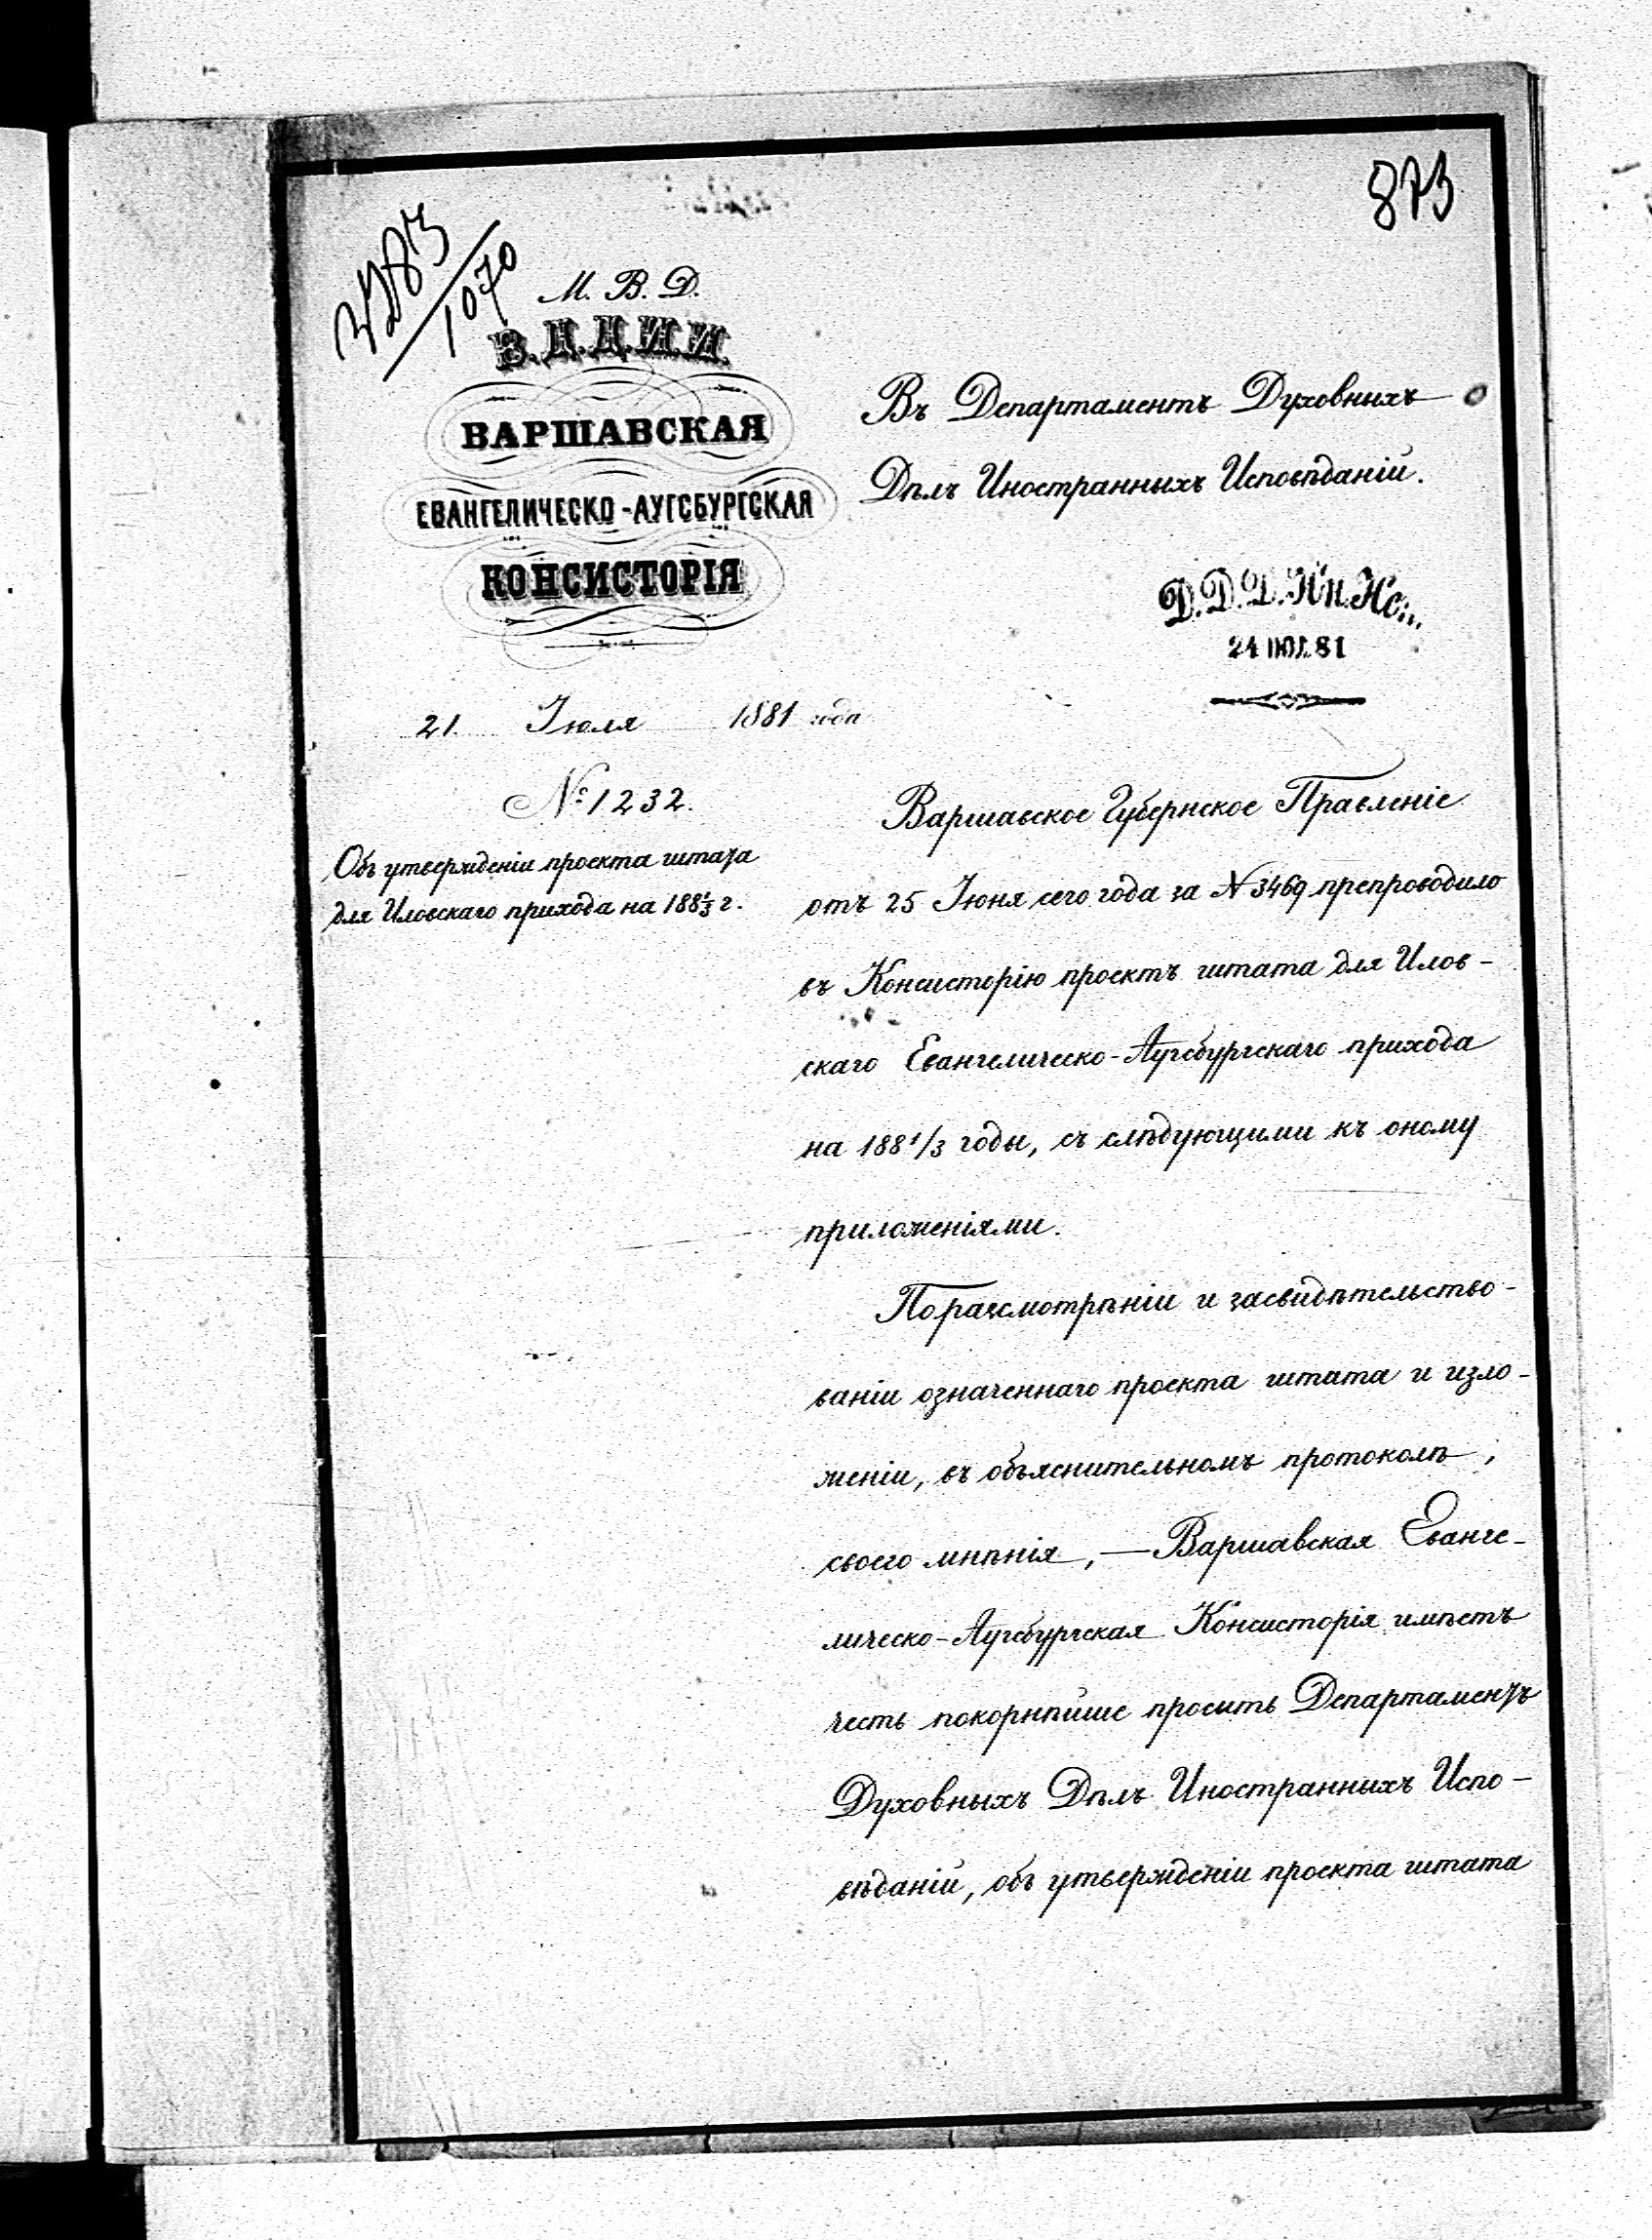 873
3283/1070
М. В. Д.
ВАРШАВСКАЯ
ЕВАНГЕЛИЧЕСКО-АУГСБУРГСКАЯ
КОНСИСТОРІЯ
21 Іюля 1881 года
№ 1232.
Объ утвержденіи проекта штата
для Иловскаго прихода на 188 1/3 г.
Въ Департаментъ Духовныхъ
Дѣлъ Иностранныхъ Исповѣданій.
Д. Д. Д. Ин. Ис.
24 ІЮЛ. 81
Варшавское Губернское Правленіе
отъ 25 Іюня сего года за N 3469 препроводило
въ Консисторію проектъ штата для Илов-
скаго Евангелическо-Аугсбургскаго прихода
на 188 1/3 годы, съ слѣдующими къ оному
приложеніями.
По разсмотрѣніи и засвидѣтельство-
ваніи означеннаго проекта штата и изло-
женіи, въ объяснительномъ протоколѣ,
своего мнѣнія, — Варшавская Еванге-
лическо-Аугсбургская Консисторія имѣетъ
честь покорнѣйше просить Департаментъ
Духовныхъ Дѣлъ Иностранныхъ Испо-
вѣданій, объ утвержденіи проекта штата